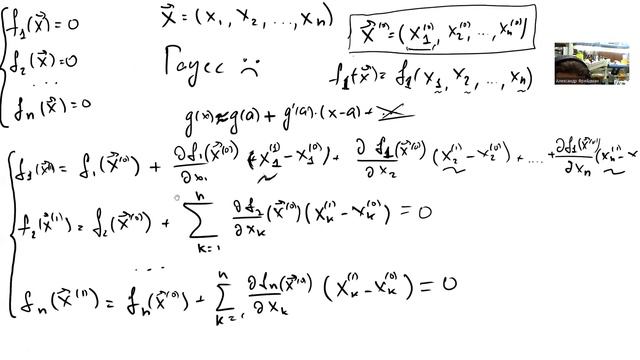 f₁(x⃗) = 0
f₂(x⃗) = 0
...
fₙ(x⃗) = 0
x⃗ = (x₁, x₂, ..., xₙ)
x⃗⁽⁰⁾ = (x₁⁽⁰⁾, x₂⁽⁰⁾, ..., xₙ⁽⁰⁾)
Гаусс ☹
f₁(x⃗) = f₁(x₁, x₂, ..., xₙ)
g(x) ≈ g(a) + g'(a)·(x-a) +
f₁(x⃗) = f₁(x⃗⁽⁰⁾) + ∂f₁(x⃗⁽⁰⁾)/∂x₁ (x₁⁽¹⁾ - x₁⁽⁰⁾) + ∂f₁(x⃗⁽⁰⁾)/∂x₂ (x₂⁽¹⁾ - x₂⁽⁰⁾) + .... + ∂f₁(x⃗⁽⁰⁾)/∂xₙ (xₙ⁽¹⁾ - x
f₂(x⃗⁽¹⁾) = f₂(x⃗⁽⁰⁾) + ∑ₖ₌₁ⁿ ∂f₂/∂xₖ (x⃗⁽⁰⁾)(xₖ⁽¹⁾ - xₖ⁽⁰⁾) = 0
...
fₙ(x⃗⁽¹⁾) = fₙ(x⃗⁽⁰⁾) + ∑ₖ₌₁ⁿ ∂fₙ(x⃗⁽⁰⁾)/∂xₖ (xₖ⁽¹⁾ - xₖ⁽⁰⁾) = 0